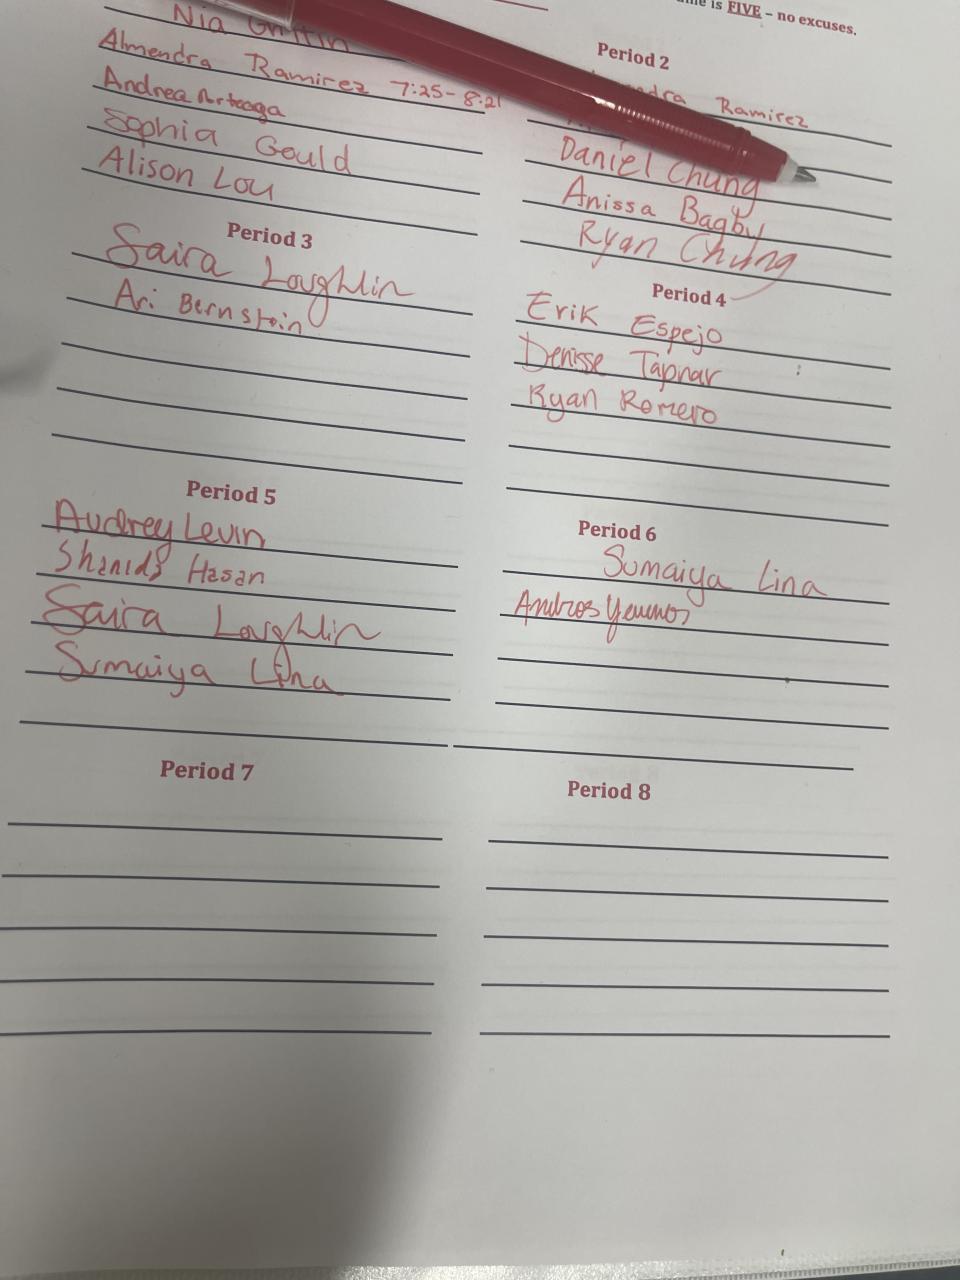 is FIVE – no excuses.
Nia Griffin
Almendra Ramirez 7:25-8:21
Andrea Arteaga
Sophia Gould
Alison Lou
Period 2
Ramirez
Daniel Chung
Anissa Bagby
Ryan Chung
Period 3
Saira Loughlin
Ari Bernstein
Period 4
Erik Espejo
Denisse Tapnar
Ryan Romero
Period 5
Audrey Levin
Shanids Hasan
Saira Loughlin
Sumaiya Lina
Period 6
Sumaiya Lina
Period 7
Period 8